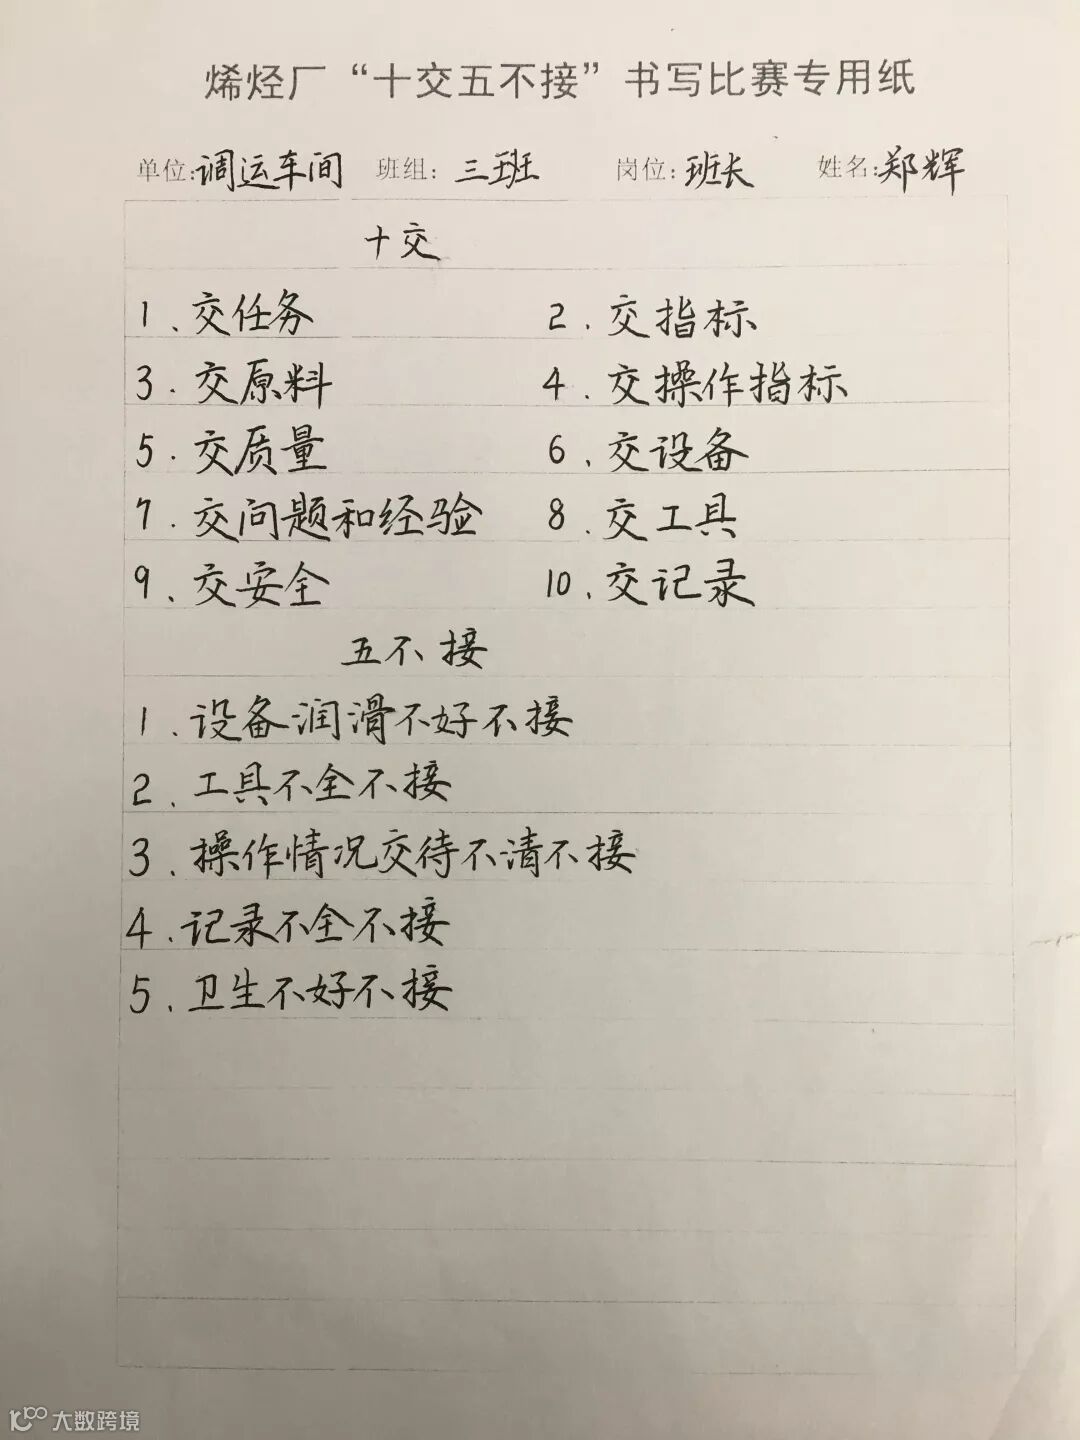 烯烃厂“十交五不接”书写比赛专用纸
单位:调运车间 班组:三班 岗位:班长 姓名:郑辉
十交
1、交任务 2、交指标
3、交原料 4、交操作指标
5、交质量 6、交设备
7、交问题和经验 8、交工具
9、交安全 10、交记录
五不接
1、设备润滑不好不接
2、工具不全不接
3、操作情况交待不清不接
4、记录不全不接
5、卫生不好不接
大数跨境